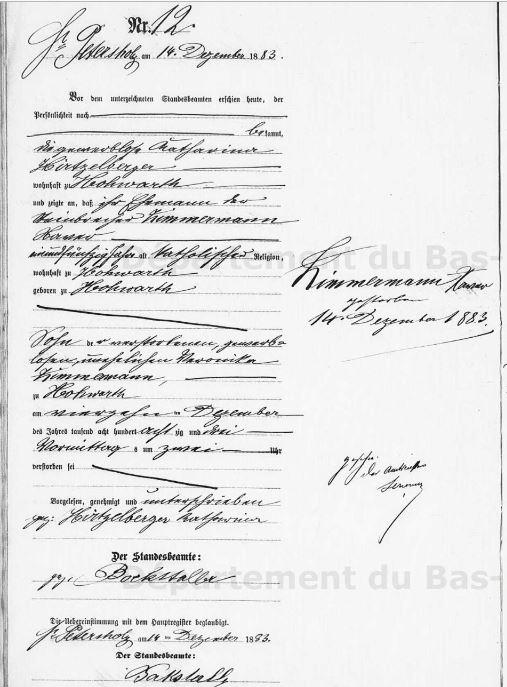 Nr. 12
St. Petersholz am 14. Dezember 1883.
Vor dem unterzeichneten Standesbeamten erschien heute, der
Persönlichkeit nach
bekannt,
die gewerblose Katharina
Hirtzelberger
wohnhaft zu Hohwarth
und zeigte an, daß ihr Ehemann der
Steinbrecher Zimmermann
Xaver
Jahre alt katholischer Religion,
wohnhaft zu Hohwarth
geboren zu Hohwarth
Sohn der verstorbenen, gewerb-
losen, unehelichen Veronika
Zimmermann,
zu Hohwarth
am vierzehn ten Dezember
des Jahres tausend acht hundert acht zig und drei
Vormittag s um zwei Uhr
verstorben sei
Vorgelesen, genehmigt und unterschrieben
gez: Hirtzelberger Katharina
Der Standesbeamte:
gez. Bockstaller
Die Uebereinstimmung mit dem Hauptregister beglaubigt.
St. Petersholz am 14 ten Dezember 1883.
Der Standesbeamte:
Zimmermann Xaver
gestorben
14. Dezember 1883.
Département du Bas-
Département du Bas-